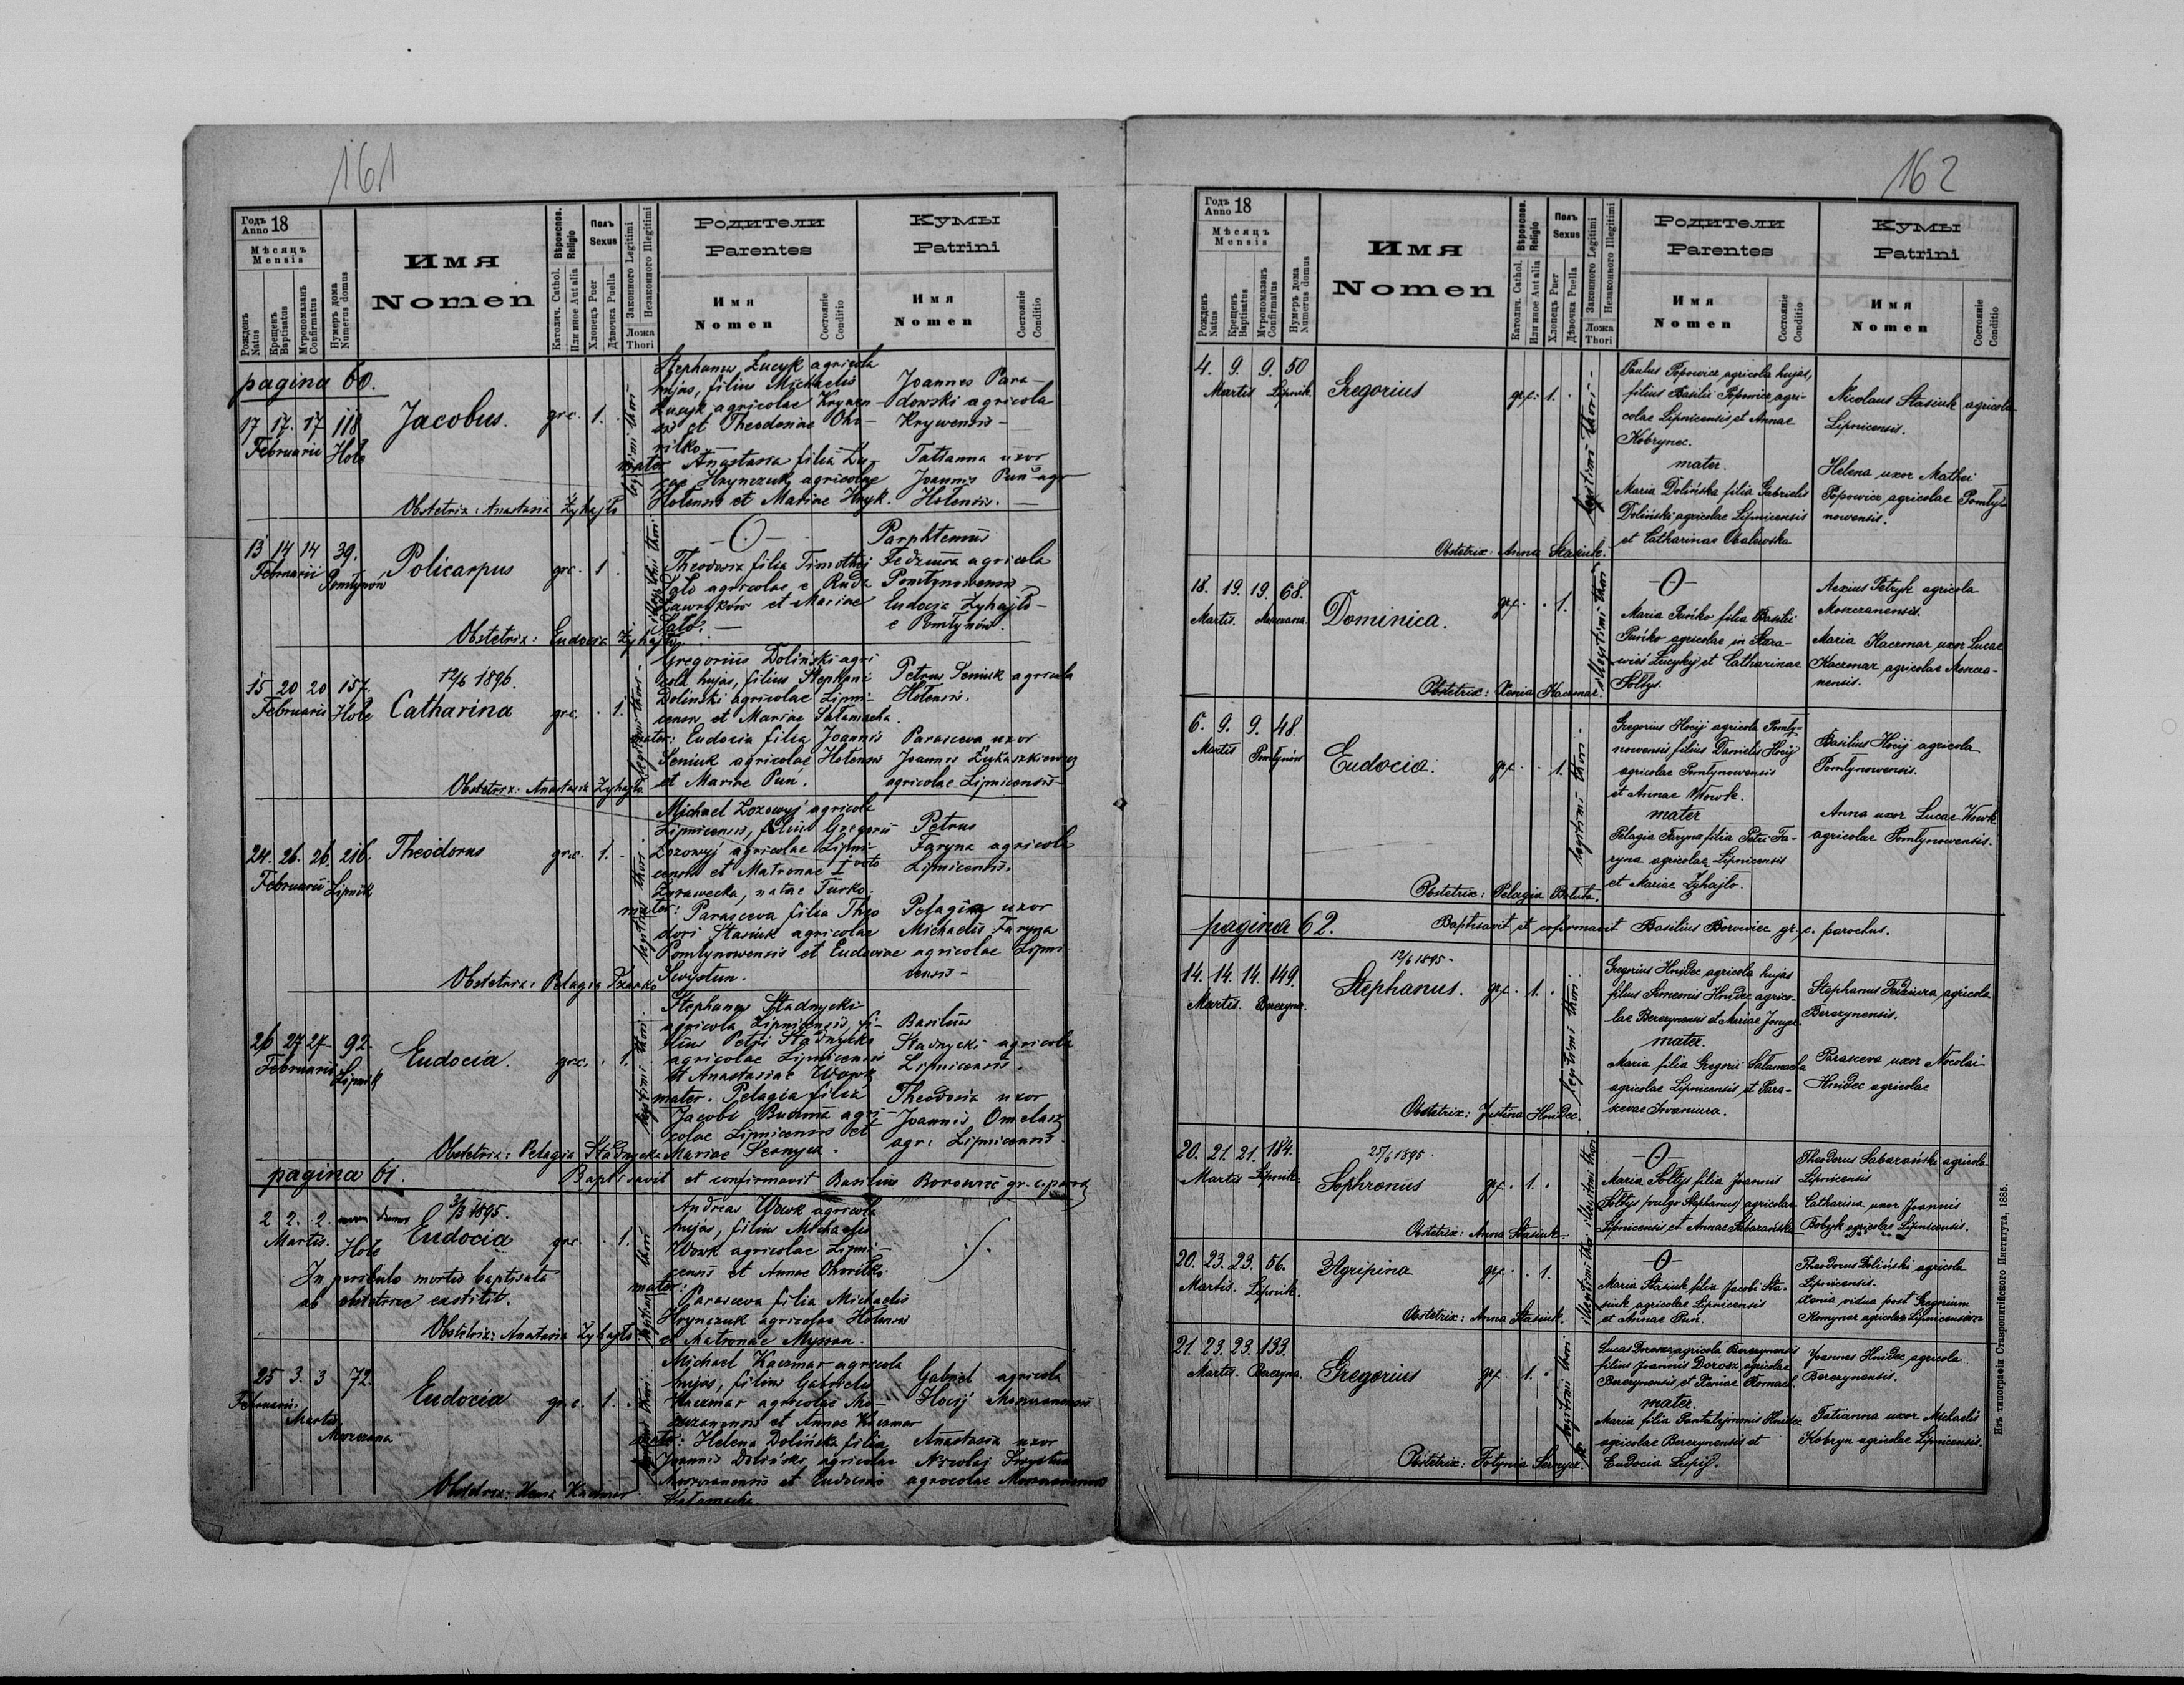 161
Годъ
Anno 18
Мѣсяцъ
Mensis
Рожденъ
Natus
Крещенъ
Baptisatus
Муропомазанъ
Confirmatus
Нумеръ дома
Numerus domus
Имя
Nomen
Вѣроиспов.
Religio
Католич. Cathol.
Или иное Aut alia
Полъ
Sexus
Хлопецъ Puer
Дѣвочка Puella
Законного Legitimi
Незаконного Illegitimi
Ложа
Thori
Родители
Parentes
Имя
Nomen
Состояніе
Conditio
Кумы
Patrini
Имя
Nomen
Состояніе
Conditio
pagina 60.
17 17. 17 118
Februarii Hole
Jacobus.
gr.c. 1.
legitimi thori
Stephanus Łucyk agricola
hujas, filius Michaelis
Łucyk agricolae Krywen-
sis et Theodoniae Oho-
rilko
mater Anastasia filia Lu-
cae Hrynczuk agricolae
Holensis et Mariae Hnyk.
Joannes Para-
dowski agricola
Krywensis
Tatianna uxor
Joannis Puń agr
Holensis.
Obstetrix: Anastasia Zyhajło
13 14 14 39.
Februarii Pomłynów
Policarpus
gr.c. 1
illegitimi thori
Theodosia filia Timothei
Sało agricolae e Ruda
Ławryków et Mariae
Sało.
Parphtemius
Fedziura agricola
Pomłynowensis
Eudocia Zyhajło
e Pomłynów.
Obstetrix: Eudocia Zyhajło
12/6 1896.
15 20 20 157.
Februarii Hole
Catharina
gr.c. 1.
legitimi thori
Gregorius Doliński agri
cola hujas, filius Stephani
Doliński agricolae Lipni-
censis et Mariae Sałamacha.
mater: Eudocia filia Joannis
Seniuk agricolae Holensis
et Mariae Puń.
Petrus Seniuk agricola
Holensis.
Parasceva uxor
Joannis Łukaszkiewicz
agricolae Lipnicensis
Obstetrix: Anastasia Zyhajło
24. 26. 26. 216.
Februarii Lipnik
Theodorus
gr.c. 1.
legitimi thori
Michael Łozowyj agricola
Lipnicensis, filius Gregorii
Łozowyj agricolae Lipni-
censis et Matronae I voto
Żurawecka, natae Turko.
mater: Parasceva filia Theo
dori Stasiuk agricolae
Pomłynowensis et Eudociae
Swystun.
Petrus
Faryna agricola
Lipnicensis.
Pelagia uxor
Michaelis Faryna
agricolae Lipni
censis
Obstetrix: Pelagia
26 27 27 92.
Februarii Lipnik
Eudocia.
gr.c. 1.
legitimi thori
Stephanus Stadnycki
agricola Lipnicensis, fi-
lius Petri Stadnycki
agricolae Lipnicensis
et Anastasiae Wowk
mater. Pelagia filia
Jacobi Budma agri-
colae Lipnicensis et
Mariae Sernyca.
Basilius
Stadnycki agricola
Lipnicensis.
Theodosia uxor
Joannis Omelasz
agr: Lipnicensis
Obstetrix: Pelagia Stadnycka
pagina 61.
Baptisavit et confirmavit Basilius Borowiec gr. c. paroch
3/3 1895.
2 2. 2.
Martis. Hole
Eudocia
gr.c 1.
legitimi thori
In periculo mortis baptisata
ab obstetrice exstitit.
Andreas Wowk agricola
hujas, filius Michaelis
Wowk agricolae Lipni-
censis et Annae Ohorilko
mater:
Parasceva filia Michaelis
Hrynczuk agricolae Holensis
et Matronae Myssan.
Obstetrix: Anastasia Zyhajło
25 3. 3 72.
Februarii
Martis
Moszczana
Eudocia
gr.c. 1.
legitimi thori
Michael Kaczmar agricola
hujas, filius Gabrielis
Kaczmar agricolae Mo-
szczanensis et Annae Kaczmar
mater: Helena Dolińska filia
Joannis Doliński agricolae
Moszczanensis et Eudociae
Sałamacha.
Gabriel agricola
Hocij Moszczanensis
Anastasia uxor
Nicolai Swystun
agricolae Moszczanensis
Obstetrix: Xenia Kaczmar
162
Годъ
Anno 18
Мѣсяцъ
Mensis
Рожденъ
Natus
Крещенъ
Baptisatus
Муропомазанъ
Confirmatus
Нумеръ дома
Numerus domus
Имя
Nomen
Вѣроиспов.
Religio
Католич. Cathol.
Или иное Aut alia
Полъ
Sexus
Хлопецъ Puer
Дѣвочка Puella
Законного Legitimi
Незаконного Illegitimi
Ложа
Thori
Родители
Parentes
Имя
Nomen
Состояніе
Conditio
Кумы
Patrini
Имя
Nomen
Состояніе
Conditio
4. 9. 9. 50
Martis Lipnik.
Gregorius
gr.c. 1.
legitimi thori
Paulus Popowicz agricola hujas,
filius Basilii Popowicz agri-
colae Lipnicensis et Annae
Kobrynec.
mater.
Maria Dolińska filia Gabrielis
Doliński agricolae Lipnicensis
et Catharinae Obalewska
Nicolaus Stasiuk agricola
Lipnicensis.
Helena uxor Mathei
Popowicz agricolae Pomły-
nowensis.
Obstetrix: Anna Stasiuk.
18. 19. 19. 68.
Martis. Moszczana.
Dominica.
gr.c. 1.
illegitimi thori
Maria Pańko filia Basilii
Pańko agricolae in Stara-
wieś Łucykij et Catharinae
Sołtys.
Alexius Petryk agricola
Moszczanensis.
Maria Kaczmar uxor Lucae
Kaczmar agricolae Moszcza-
nensis.
Obstetrix: Xenia Kaczmar.
6. 9. 9. 48.
Martis Pomłynów
Eudocia.
gr.c. 1.
legitimi thori
Gregorius Hocij agricola Pomły-
nowensis filius Danielis Hocij
agricolae Pomłynowensis
et Annae Wowk.
mater
Pelagia Faryna filia Petri Fa-
ryna agricolae Lipnicensis
et Mariae Zyhajło.
Basilius Hocij agricola
Pomłynowensis.
Anna uxor Lucae Wowk
agricolae Pomłynowensis.
Obstetrix: Pelagia Bałuta.
pagina 62.
Baptisavit et cofirmavit Basilius Borowiec gr. c. parochus.
12/6 1895.
14. 14. 14. 149.
Martis. Berezyna.
Stephanus.
gr.c. 1.
legitimi thori.
Gregorius Hnidec agricola hujas
filius Simeonis Hnidec agrico-
lae Berezynensis et Mariae
mater.
Maria filia Gregorii Sałamacha
agricolae Lipnicensis et Para-
scevae Iwaniura.
Stephanus Fedziura agricola
Berezynensis.
Parasceva uxor Nicolai
Hnidec agricolae
Obstetrix: Justina Hnidec.
25/6 1895.
20. 21. 21. 184.
Martis Lipnik.
Sophronius
gr.c. 1.
illegitimi thori.
Maria Sołtys filia Joannis
Sołtys (vulgo Stephanus) agricolae
Lipnicensis, et Annae Sabarańska
Theodorus Sabarański agricola
Lipnicensis
Catharina uxor Joannis
Bobyk agricolae Lipnicensis.
Obstetrix: Anna Stasiuk
20. 23. 23. 56.
Martis. Lipnik.
Agripina
gr.c. 1.
illegitimi thori
Maria Stasiuk filia Jacobi Sta-
siuk agricolae Lipnicensis
et Annae Puń.
Theodorus Doliński agricola
Lipnicensis.
Xenia vidua post Gregorium
Komynar agricolae Lipnicensem
Obstetrix: Anna Stasiuk.
21. 23. 23. 133.
Martis. Berezyna.
Gregorius
gr.c. 1.
legitimi thori
Lucas Dorosz agricola Berezynensis
filius Joannis Dorosz agricolae
Berezynensis, et Xeniae Romach.
mater.
Maria filia Pantalejmonis Hnidec
agricolae Berezynensis et
Eudocia Łupij.
Joannes Hnidec agricola
Berezynensis.
Tatianna uxor Michaelis
Kobryn agricolae Lipnicensis.
Obstetrix: Fotynia Sernyca.
Изъ типографіи Ставропигійского Института, 1885.